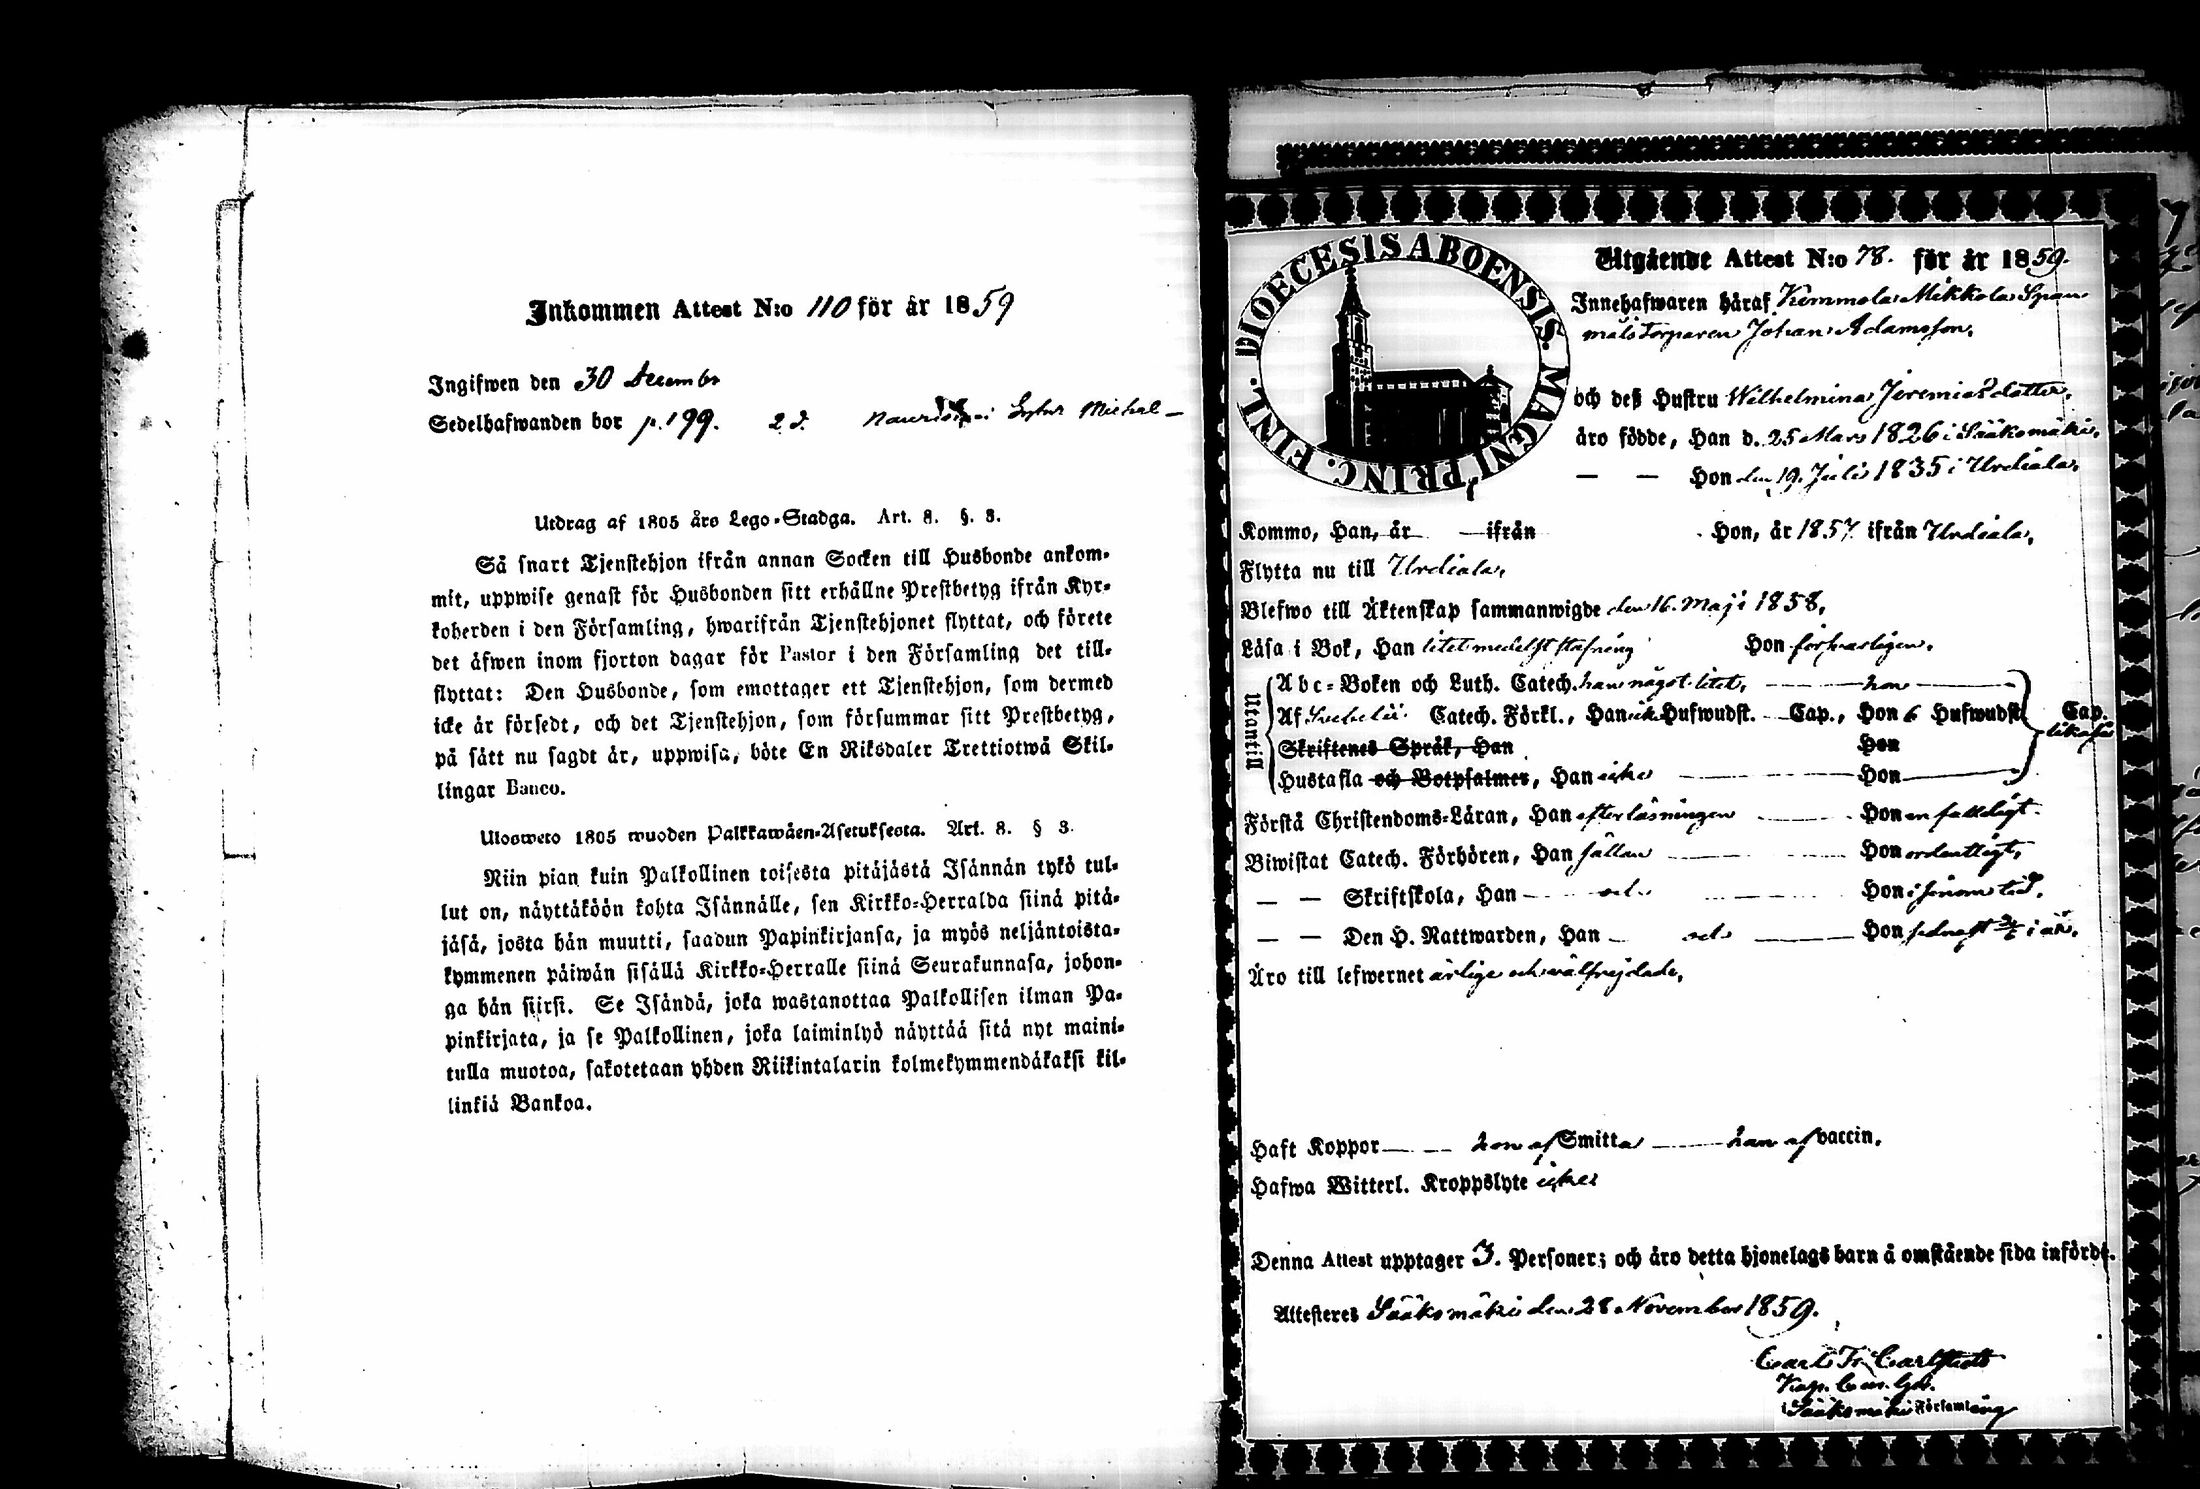 Inkommen Attest N:o 110 för år 1859
Ingifwen den 30 Decembr
Sedelhafwanden bor p. 199. 2 d.
Utdrag af 1805 års Lego-Stadga. Art. 8. §. 3.
Så snart Tjenstehjon ifrån annan Socken till Husbonde ankom-
mit, uppwise genast för Husbonden sitt erhållne Prestbetyg ifrån Kyr-
koherden i den Församling, hwarifrån Tjenstehjonet flyttat, och förete
det äfwen inom fjorton dagar för Pastor i den Församling det till-
flyttat: Den Husbonde, som emottager ett Tjenstehjon, som dermed
icke är försedt, och det Tjenstehjon, som försummar sitt Prestbetyg,
på sätt nu sagdt är, uppwisa, böte En Riksdaler Trettiotwå Skil-
lingar Banco.
Ulosweto 1805 wuoden Palkkawäen-Asetuksesta. Art. 8. § 3.
Niin pian kuin Palkollinen toisesta pitäjästä Isännän tykö tul-
lut on, näyttäköön kohta Isännälle, sen Kirkko-Herralda siinä pitä-
jäsä, josta hän muutti, saadun Papinkirjansa, ja myös neljäntoista-
kymmenen päiwän sisällä Kirkko-Herralle siinä Seurakunnasa, johon-
ga hän siirsi. Se Isändä, joka wastanottaa Palkollisen ilman Pa-
pinkirjata, ja se Palkollinen, joka laiminlyö näyttää sitä nyt maini-
tulla muotoa, sakotetaan yhden Riikintalarin kolmekymmendäkaksi kil-
linkiä Bankoa.
DIOECESIS ABOENSIS. MAGNI PRINC. FINL.
Utgående Attest N:o 78. för år 1859.
Innehafwaren häraf Kemmola Mikkola Span
måls torparen Johan Adamsson,
och deß Hustru Wilhelmina Jeremiædotter,
äro födde, Han d. 25 Mars 1826 i Sääksmäki,
— — Hon den 19. Julii 1835 i Urdiala,
Kommo, Han, år — ifrån Hon, år 1857 ifrån Urdiala,
Flytta nu till Urdiala,
Blefwo till Äktenskap sammanwigde den 16. Maji 1858,
Läsa i Bok, Han litet medelst stafning Hon försvarligen,
Utantill
Abc-Boken och Luth. Catech. han något litet, — hon —
Af Svebelii Catech. Förkl., Han ick Hufwudst. — Cap., Hon 6 Hufwudst. Cap.
Skriftenes Språk, Han Hon
Hustafla och Botpsalmer, Han icke — Hon —
Förstå Christendoms-Läran, Han efter läsningen — Hon enfaldigt.
Biwistat Catech. Förhören, Han sällan — Hon ordentligt,
— — Skriftskola, Han — Hon i sinom tid,
— — Den H. Nattwarden, Han — Hon sednast i år,
Äro till lefwernet ärlige och välfrejdade,
Haft Koppor — hon af Smitta — han af vaccin,
Hafwa Witterl. Kroppslyte icke
Denna Attest upptager 3. Personer; och äro detta hjonelags barn å omstående sida införde.
Attesteres Sääksmäki den 28 November 1859.
Carl Fr. Carlstedt
Kap.
Sääksmäki Församling